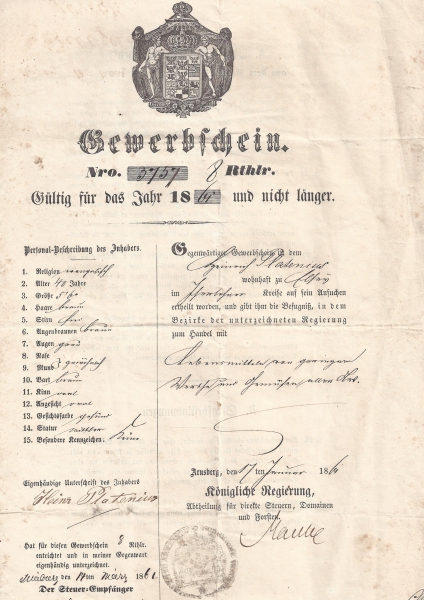 Gewerbschein.
Nro. 5757 8 Rthlr.
Gültig für das Jahr 1861 und nicht länger.
Personal-Beschreibung des Inhabers.
1. Religion evangelisch
2. Alter 40 Jahre
3. Größe
4. Haare braun
5. Stirn
6. Augenbraunen braun
7. Augen grau
8. Nase
9. Mund gewöhnlich
10. Bart braun
11. Kinn oval
12. Angesicht oval
13. Gesichtsfarbe gesund
14. Statur mittler
15. Besondere Kennzeichen. Keine
Eigenhändige Unterschrift des Inhabers
Heinr Platenius
Hat für diesen Gewerbschein 8 Rthlr.
entrichtet und in meiner Gegenwart
eigenhändig unterzeichnet.
den März 1861
Der Steuer-Empfänger
Gegenwärtiger Gewerbschein ist dem
Heinrich Platenius
wohnhaft zu Elsey
im Iserlohner Kreise auf sein Ansuchen
ertheilt worden, und gibt ihm die Befugniß, in dem
Bezirke der unterzeichneten Regierung
zum Handel mit
Lebensmitteln von geringem
Werthe und Gemüsen aller Art.
Arnsberg, den 17ten Januar 1861
Königliche Regierung,
Abtheilung für direkte Steuern, Domainen
und Forsten.